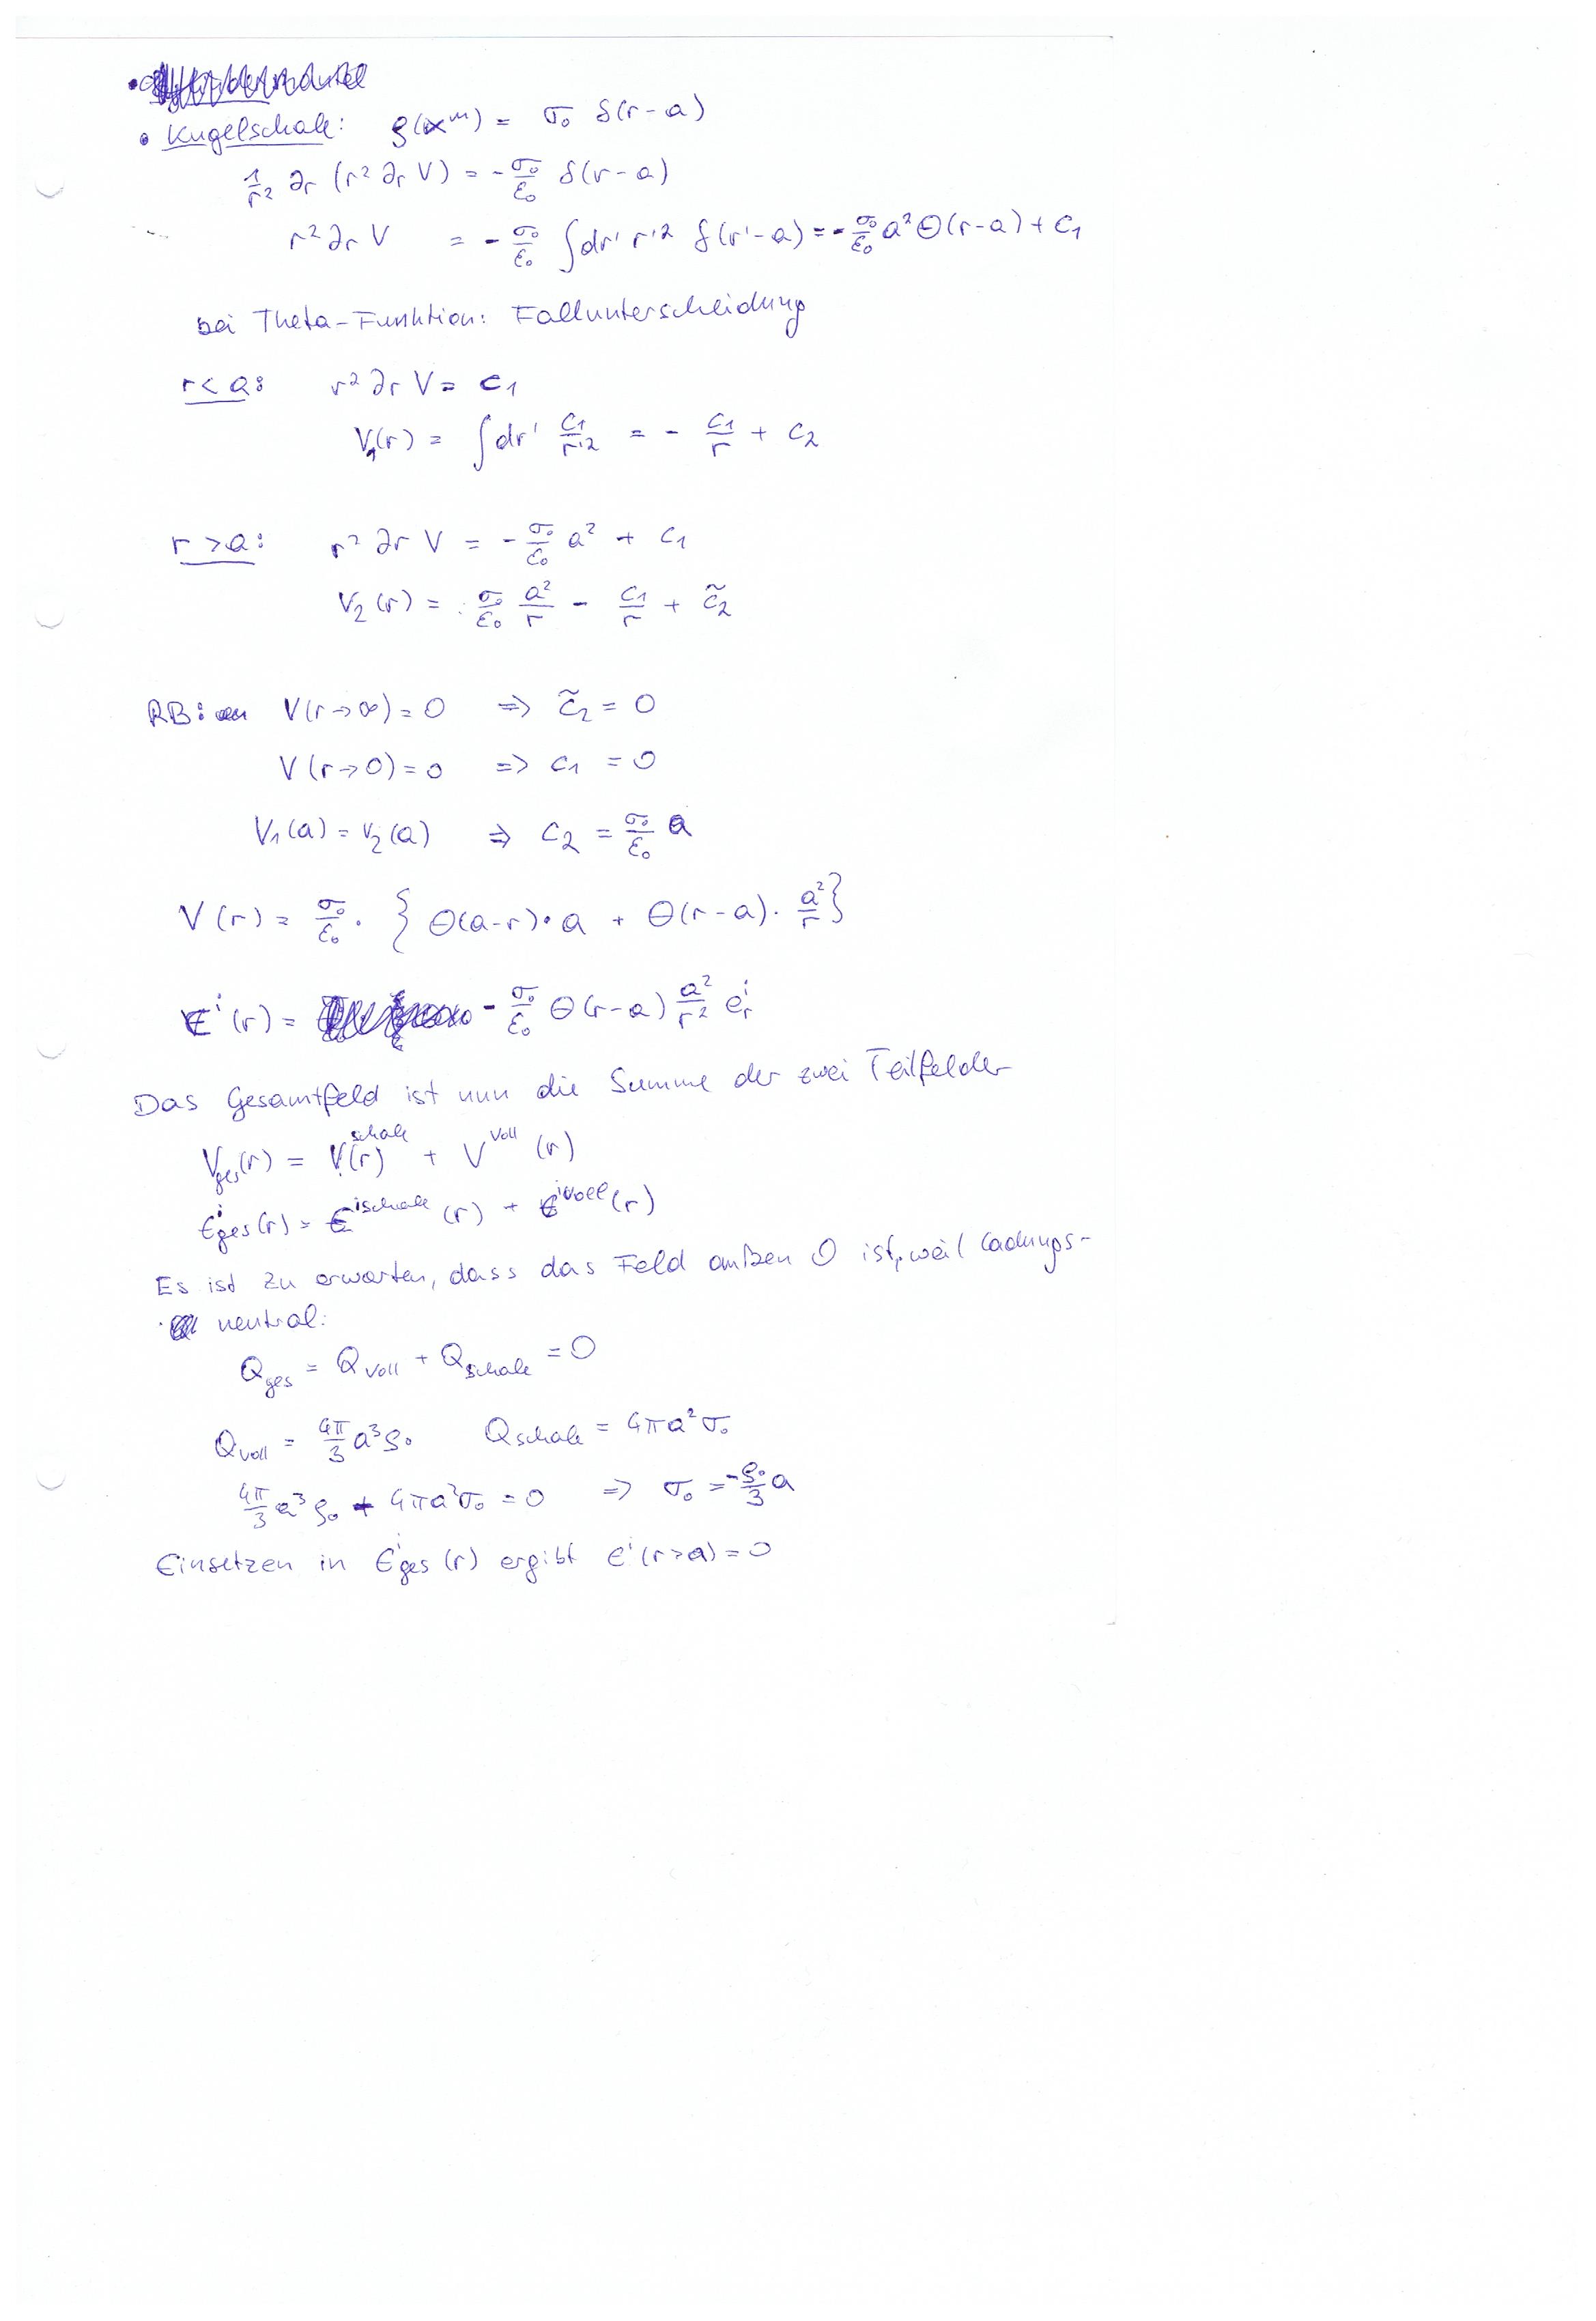 • Kugelschale: ρ(x^m) = σ₀ δ(r-a)
1/r² ∂r (r² ∂r V) = - σ₀/ε₀ δ(r-a)
r² ∂r V = - σ₀/ε₀ ∫dr' r'² δ(r'-a) = - σ₀/ε₀ a² Θ(r-a) + c₁
bei Theta-Funktion: Fallunterscheidung
r < a: r² ∂r V = c₁
V₁(r) = ∫dr' c₁/r'² = - c₁/r + c₂
r > a: r² ∂r V = - σ₀/ε₀ a² + c₁
V₂(r) = σ₀/ε₀ a²/r - c₁/r + c̃₂
RB: V(r→∞) = 0 ⇒ c̃₂ = 0
V(r→0) = 0 ⇒ c₁ = 0
V₁(a) = V₂(a) ⇒ c₂ = σ₀/ε₀ a
V(r) = σ₀/ε₀ · { Θ(a-r)·a + Θ(r-a)· a²/r }
E^i(r) = - σ₀/ε₀ Θ(r-a) a²/r² e_r^i
Das Gesamtfeld ist nun die Summe der zwei Teilfelder
V_ges(r) = V(r)^schale + V^voll (r)
E^i_ges(r) = E^i schale (r) + E^i voll (r)
Es ist zu erwarten, dass das Feld außen 0 ist, weil Ladungs-
neutral:
Q_ges = Q_voll + Q_schale = 0
Q_voll = 4π/3 a³ρ₀ Q_schale = 4πa²σ₀
4π/3 a³ρ₀ + 4πa²σ₀ = 0 ⇒ σ₀ = - ρ₀/3 a
Einsetzen in E^i_ges (r) ergibt E^i(r>a) = 0